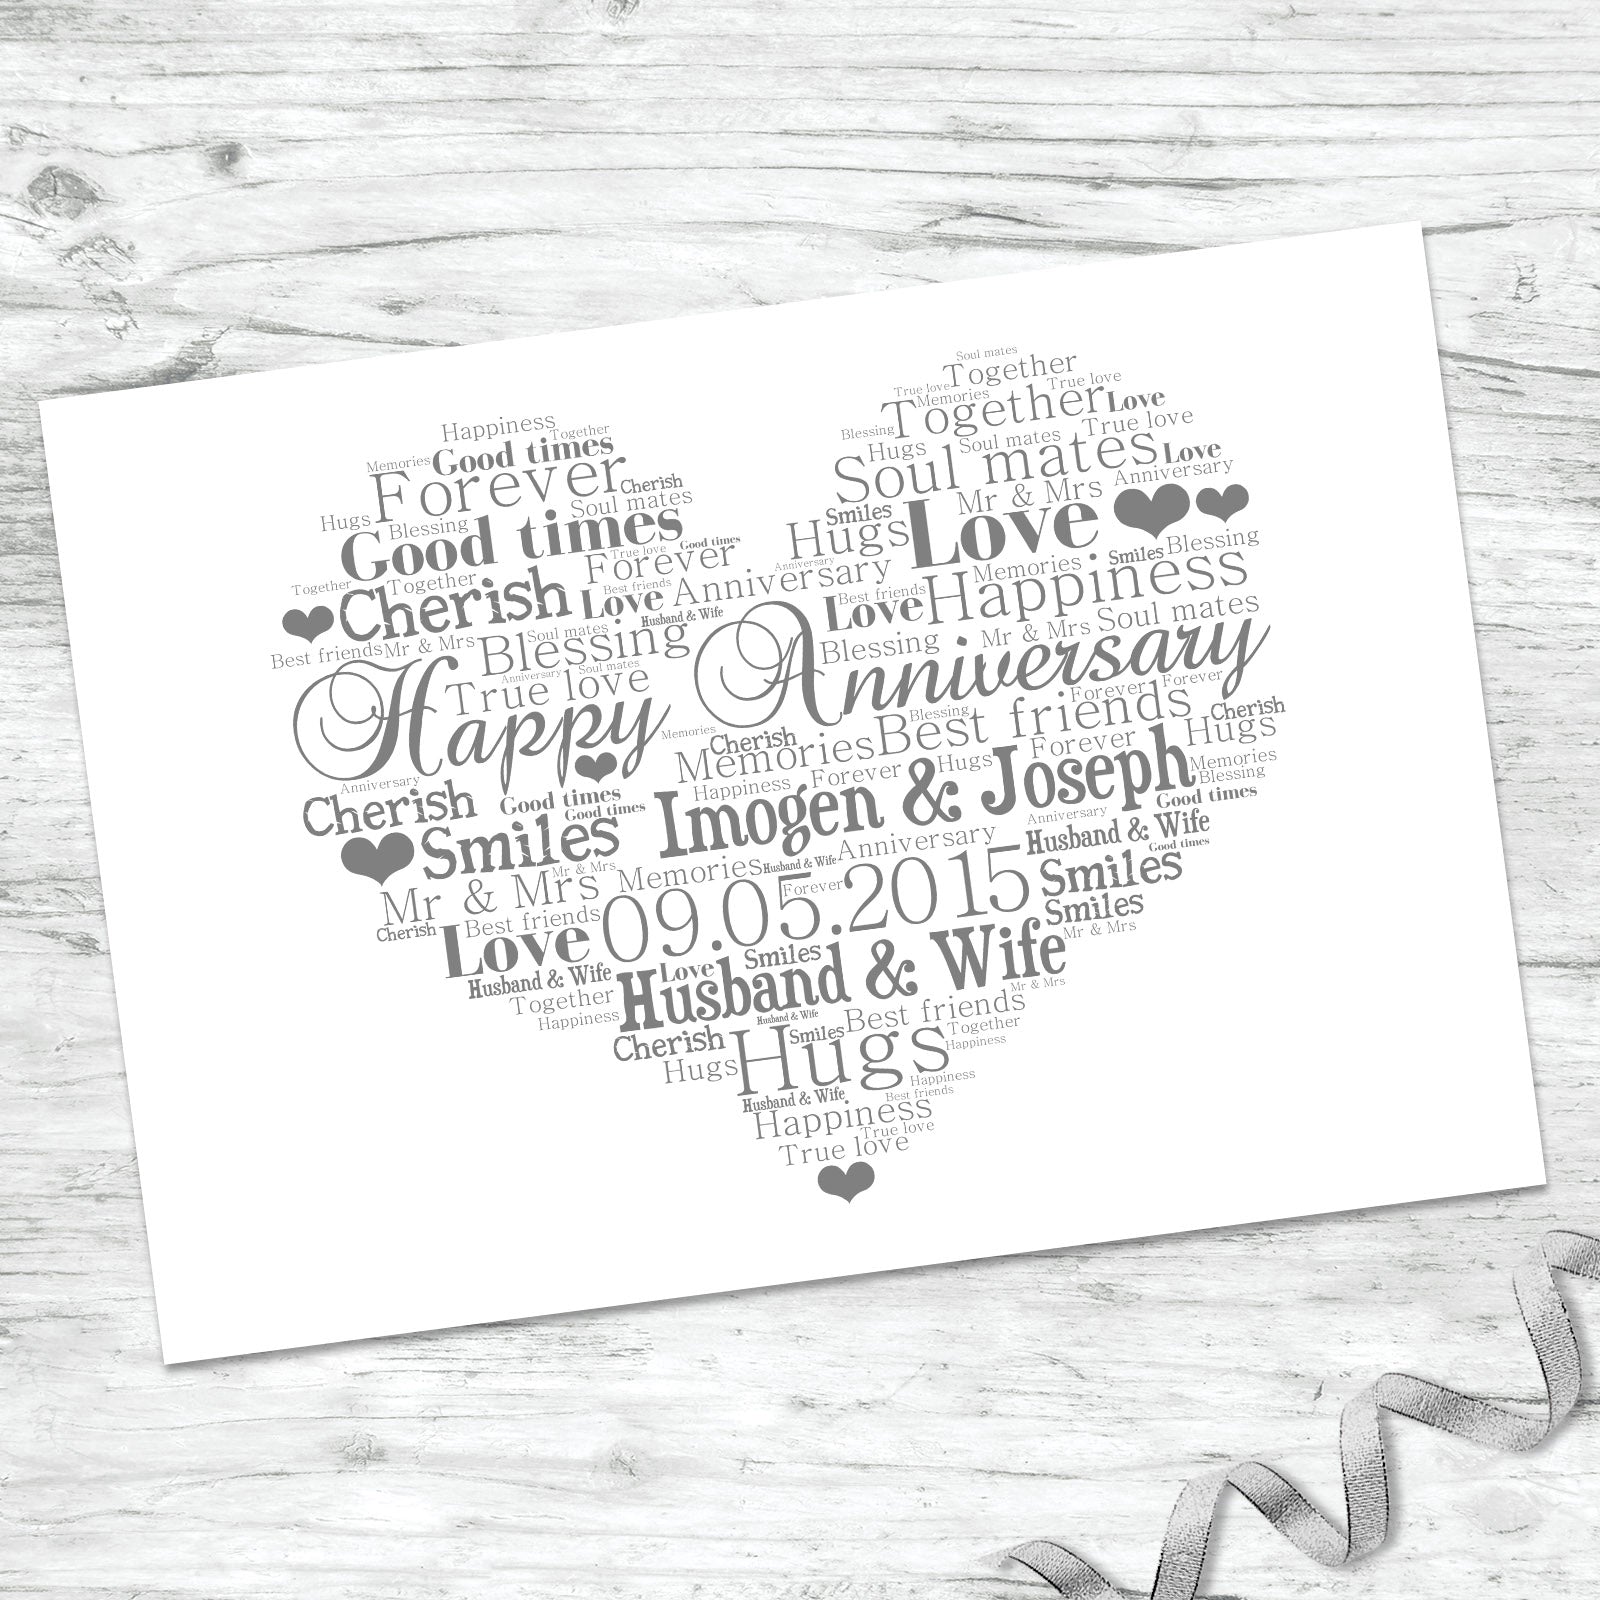 Soul mates
Together
True love True love
Memories
Together Love
Blessing
Hugs Soul mates True love
Soul mates Love
Mr & Mrs Anniversary
Smiles
Hugs Love
Happiness
Together
Good times
Memories
Forever Cherish
Soul mates
Hugs Blessing
Good times
True love Good times
Forever
Together Together
Cherish
Best friends
Love Anniversary
Anniversary
Husband & Wife
Memories Smiles Blessing
Best friends
Love Happiness
Best friends Mr & Mrs Soul mates
Blessing
Blessing Mr & Mrs Soul mates
Anniversary Soul mates
True love
Happy Anniversary
Forever Forever
Memories
Blessing
Cherish
Memories Best friends Cherish
Hugs
Happiness Forever Hugs Forever
Memories
Blessing
Anniversary
Cherish Good times
Good times
Imogen & Joseph
Good times
Anniversary
Smiles
Husband & Wife
Good times
Mr & Mrs
Mr & Mrs Memories Husband & Wife Anniversary
Forever
09.05.2015
Smiles
Smiles
Cherish Best friends
Love
Smiles
Love
Mr & Mrs
Husband & Wife
Husband & Wife
Together
Happiness
Mr & Mrs
Husband & Wife
Best friends
Cherish Smiles
Together
Hugs Hugs
Happiness
Happiness
Husband & Wife Best friends
Happiness
True love
True love